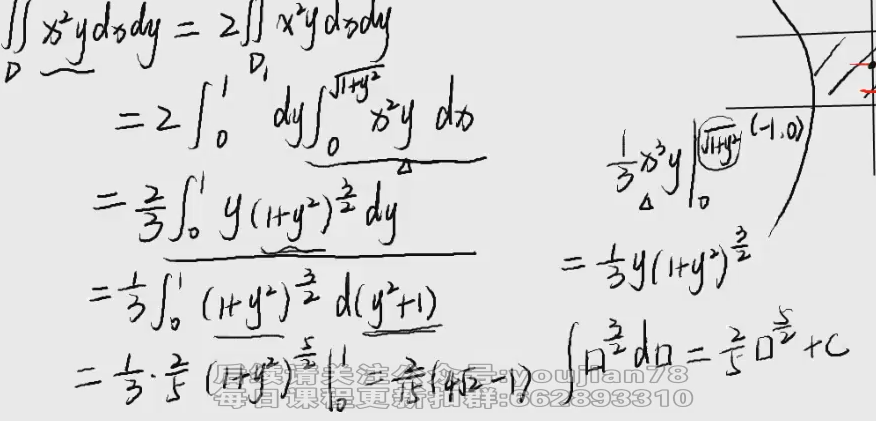 ∬_D x²y dxdy = 2∬_{D₁} x²y dxdy
= 2∫₀¹ dy ∫₀^{√(1+y²)} x²y dx
= 2/3 ∫₀¹ y(1+y²)^{3/2} dy
= 1/3 ∫₀¹ (1+y²)^{3/2} d(y²+1)
= 1/3 · 2/5 (1+y²)^{5/2} |₀¹ = 2/15 (4√2-1)
(-1,0)
1/3 x³y |₀^{√(1+y²)}
= 1/3 y(1+y²)^{3/2}
∫□^{3/2} d□ = 2/5 □^{5/2} + C
:youjian78
每日课程更新扣群:662893310